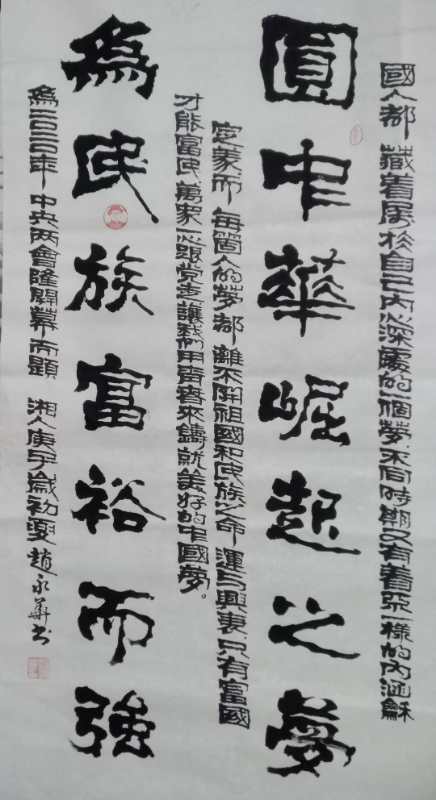 國人都藏着属於自己内心深處的一個夢.不同時期又有着不一樣的内涵龢
圓中華崛起之夢
定義而每箇人的夢都離不開祖國和民族之命運与興衰.只有富國
才能富民萬衆一心跟党走讓我們用青春來鑄就美好的中國夢。
為民族富裕而強
為二〇二〇年中央两會隆開幕而題 湘人庚子歲初夏趙永華书